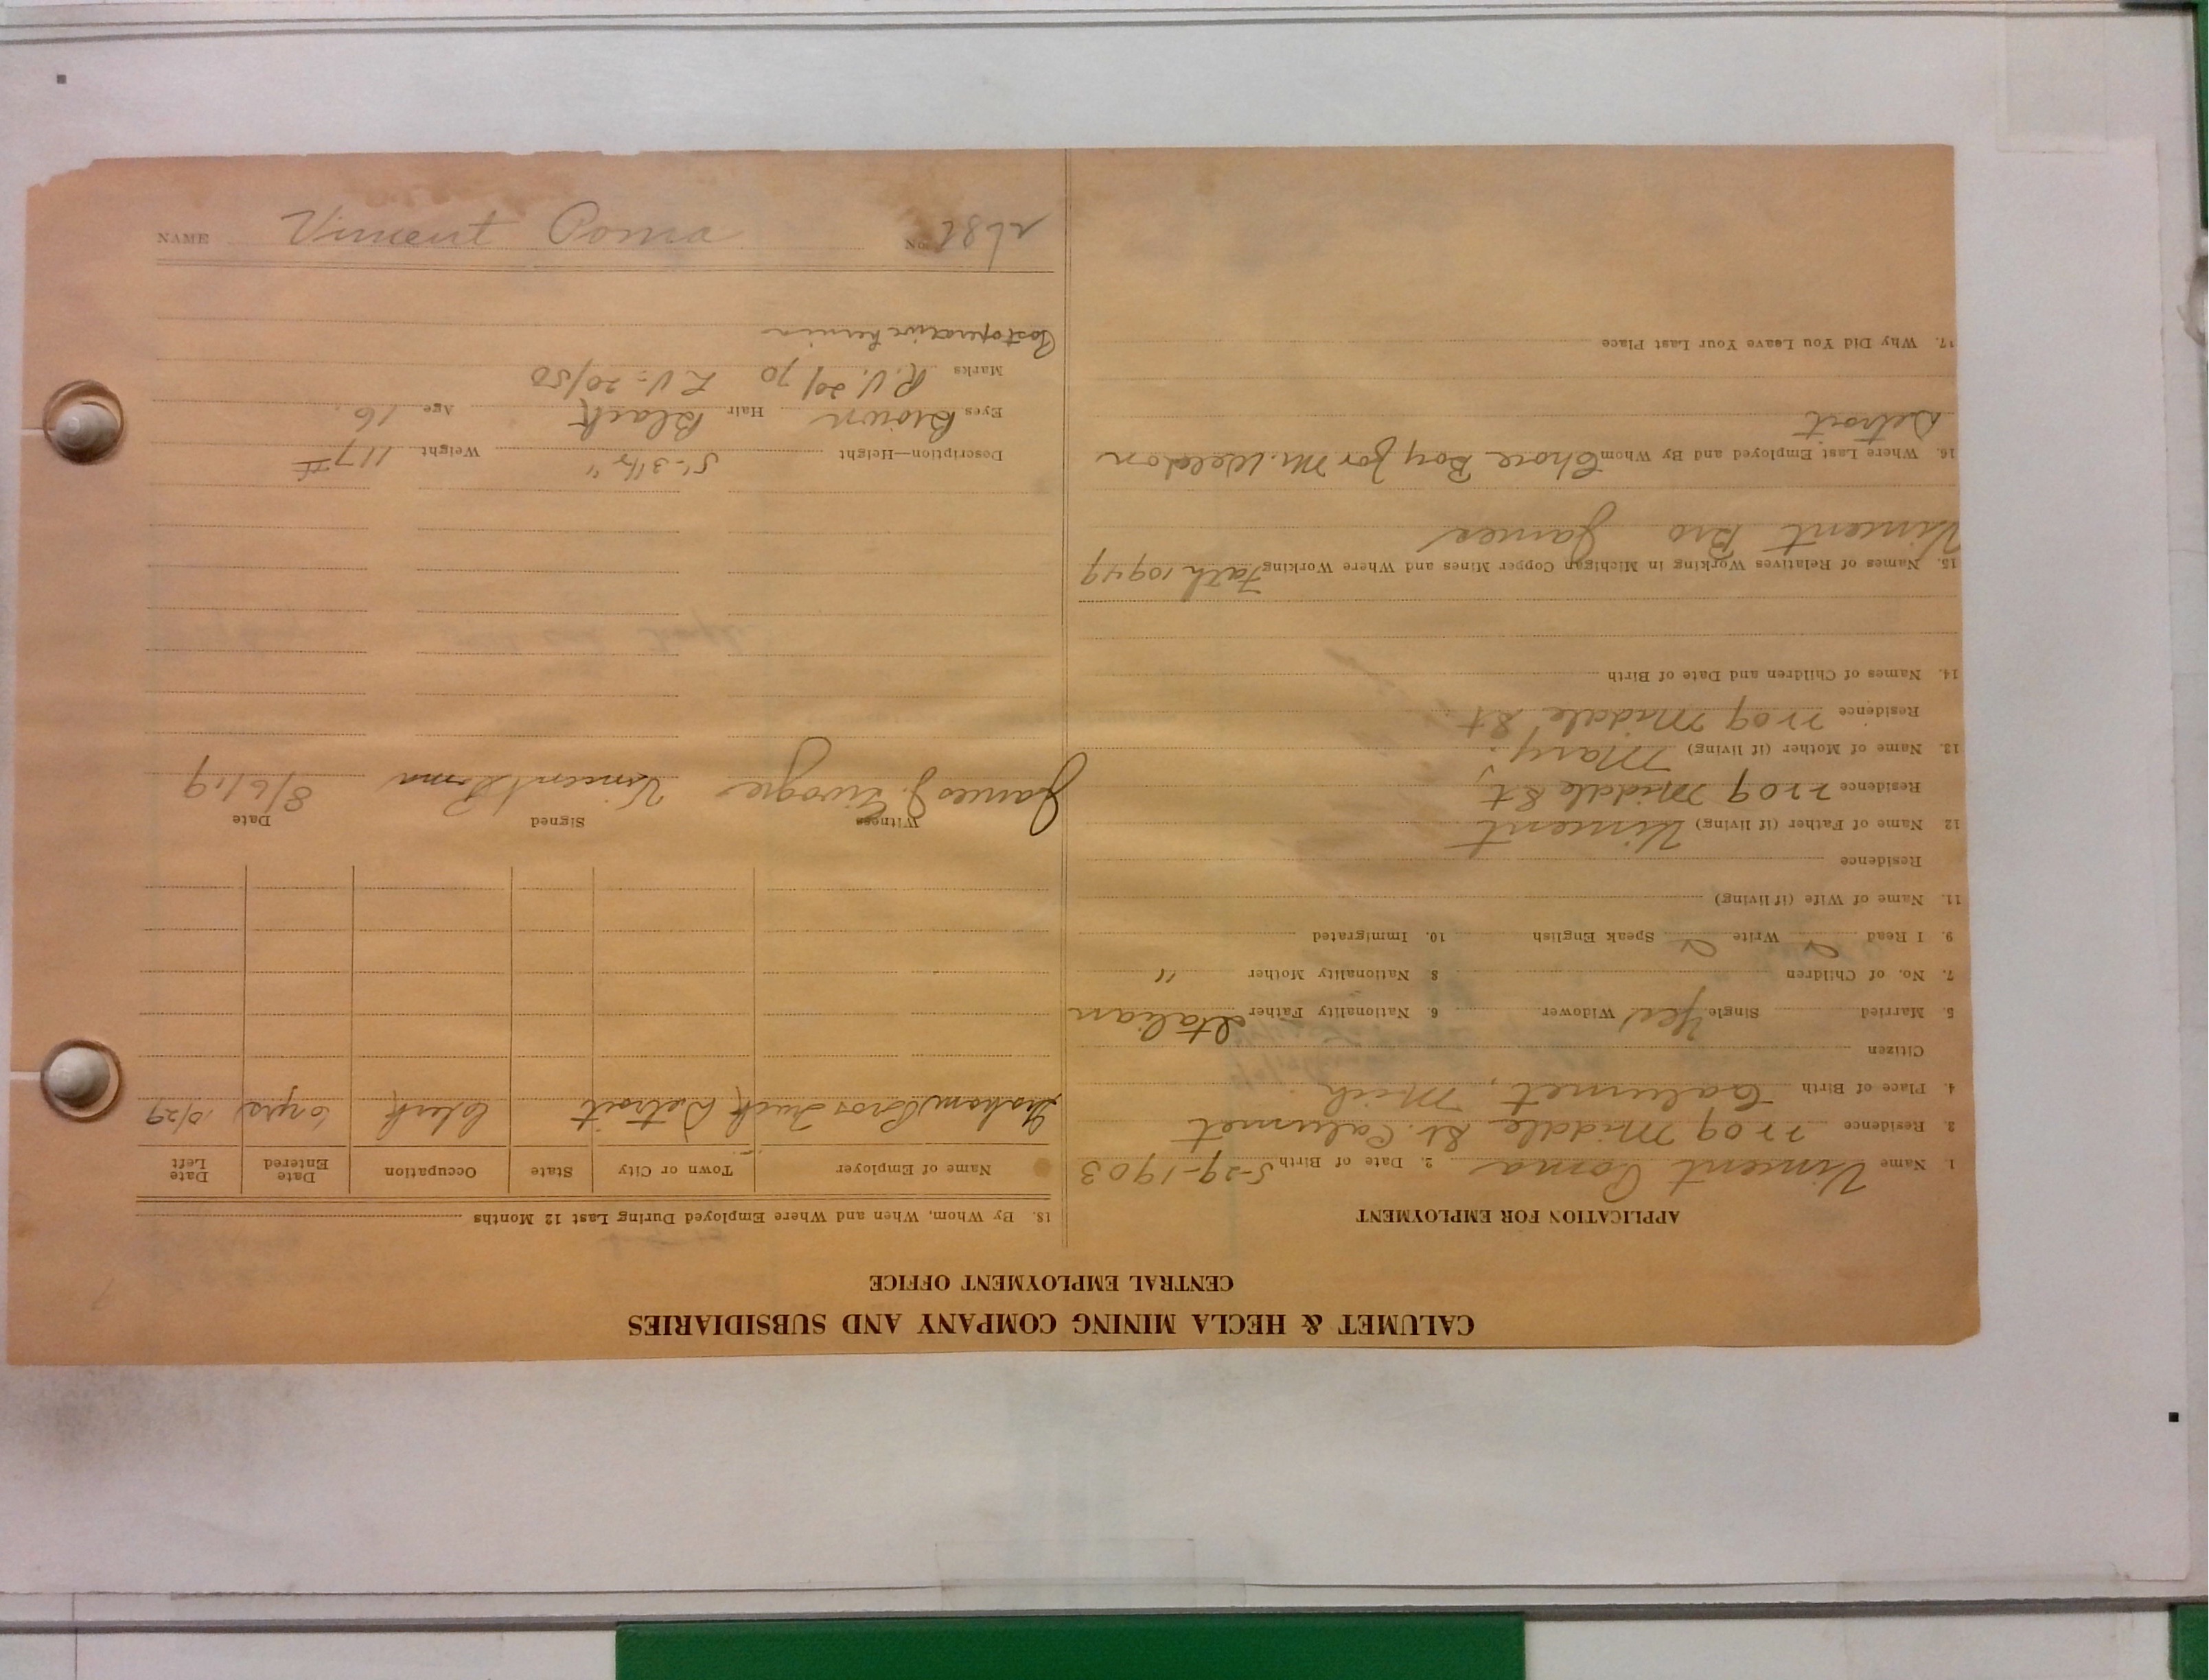 CALUMET & HECLA MINING COMPANY AND SUBSIDIARIES
CENTRAL EMPLOYMENT OFFICE
APPLICATION FOR EMPLOYMENT
1. Name Vincent Poma 2. Date of Birth 5-29-1903
3. Residence 2209 Middle St. Calumet
4. Place of Birth Calumet, Mich
Citizen
5. Married Single Yes Widower 6. Nationality Father Italian
7. No. of Children 8 Nationality Mother "
9. I Read Write Speak English 10. Immigrated
11. Name of Wife (if living)
Residence
12 Name of Father (if living) Vincent
Residence 2209 Middle St,
13. Name of Mother (if living) Mary.
Residence 2209 Middle St.
14. Names of Children and Date of Birth
15. Names of Relatives Working in Michigan Copper Mines and Where Working Fath 10949
Vincent Bro James
16. Where Last Employed and By Whom Chore Boy for Mr. Weldon
Detroit
17. Why Did You Leave Your Last Place
18. By Whom, When and Where Employed During Last 12 Months
Name of Employer Town or City State Occupation Date Entered Date Left
Graham Bros Truck Detroit Clerk 6 yrs 10/29
Witness Signed Date
James J. Vincent Poma 8/6/19
Description—Height 5'-3 1/2" Weight 117 #
Eyes Brown Hair Black Age 16
Marks R.V. 20/70 L V = 20/50
Post operative hernia
NAME Vincent Poma No.